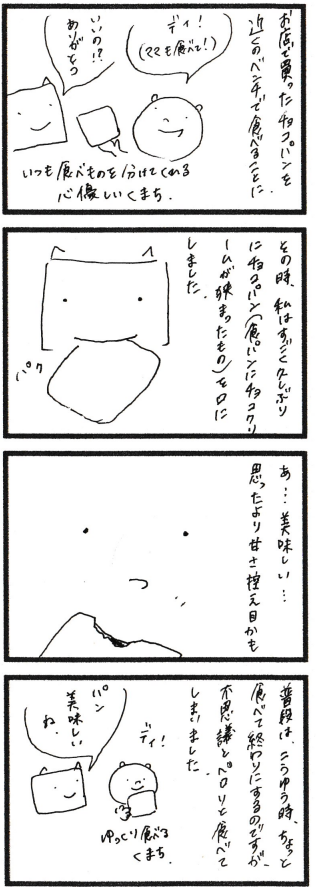 お店で買ったチョコパンを
近くのベンチで食べることに。
ディ!
(ママも食べて!)
いいの!?
ありがとう
いつも食べものを分けてくれる
心優しいくまち。
その時、私はすごく久しぶり
にチョコパン(食パンにチョコクリ
ームが挟まったもの)を口に
しました。
パク
あ…美味しい…
思ったより甘さ控え目かも
普段は、こうゆう時、ちょっと
食べて終わりにするのですが、
不思議とペロリと食べて
しまいました。
ディ!
パン
美味しい
ね。
ゆっくり食べる
くまち。